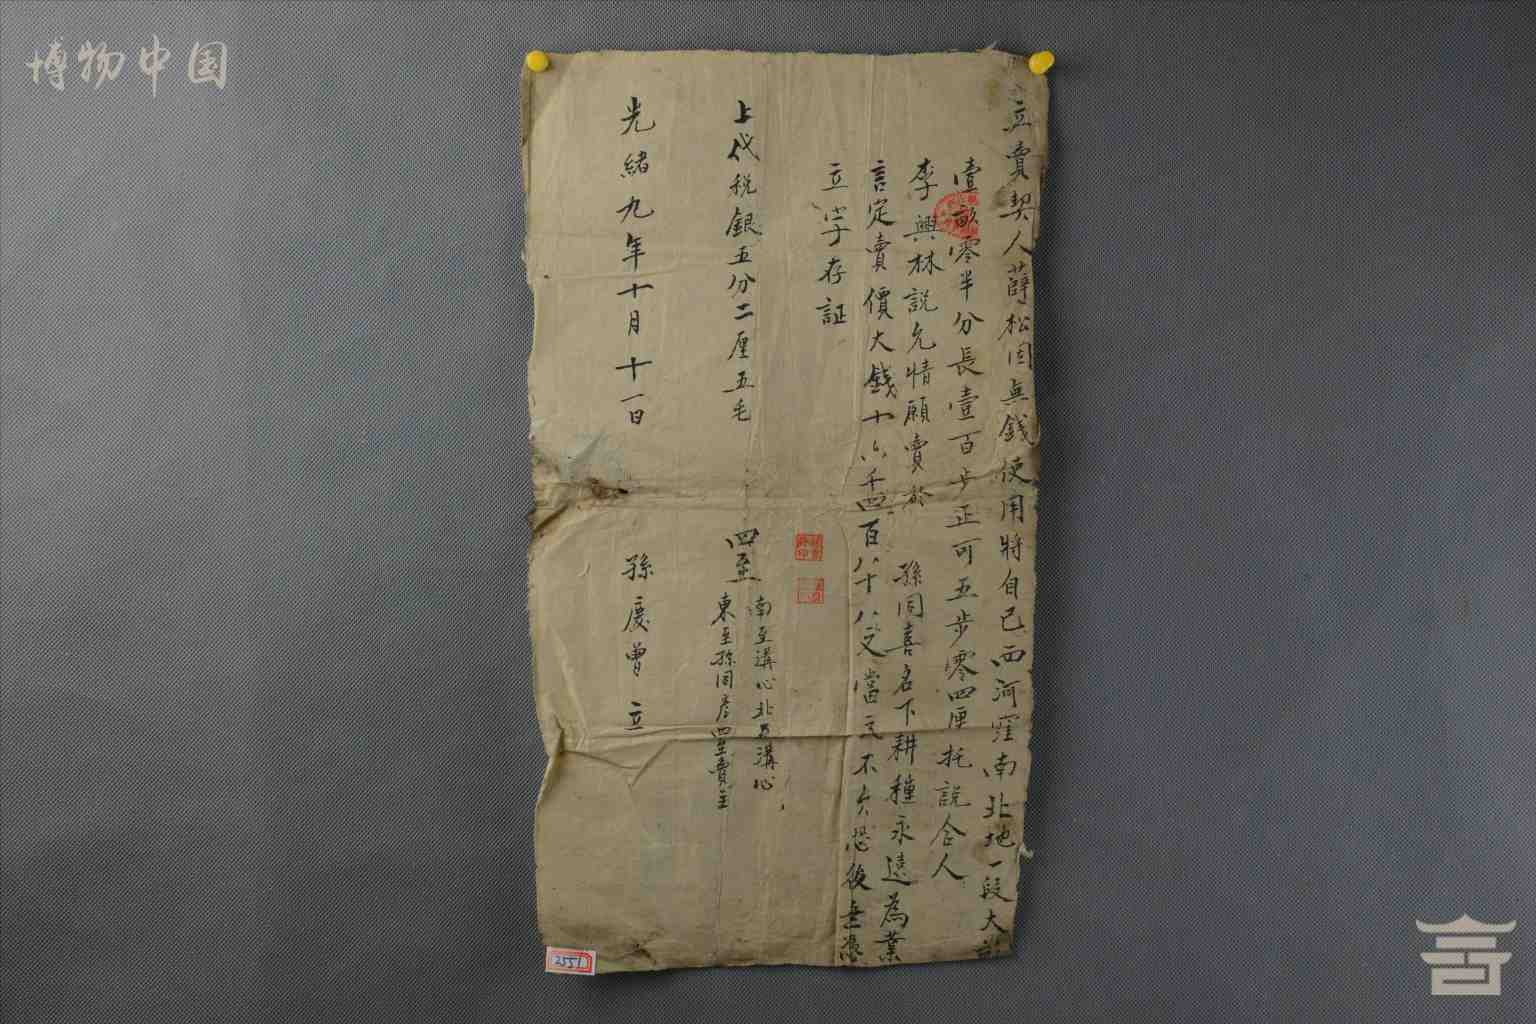 博物中国
立賣契人薛松因無錢使用將自己西河窪南北地一段大
壹畝零半分長壹百步正可五步零四厘托說合人
李興林說允情願賣於 孫同喜名下耕種永遠為業
言定賣價大錢十六千四百八十八文當交不欠恐後無憑
立字存証
上代稅銀五分二厘五毛 四至
南至溝心北至溝心
東至孫同彥西至賣主
光緒九年十月十一日 孫慶曾立
2551